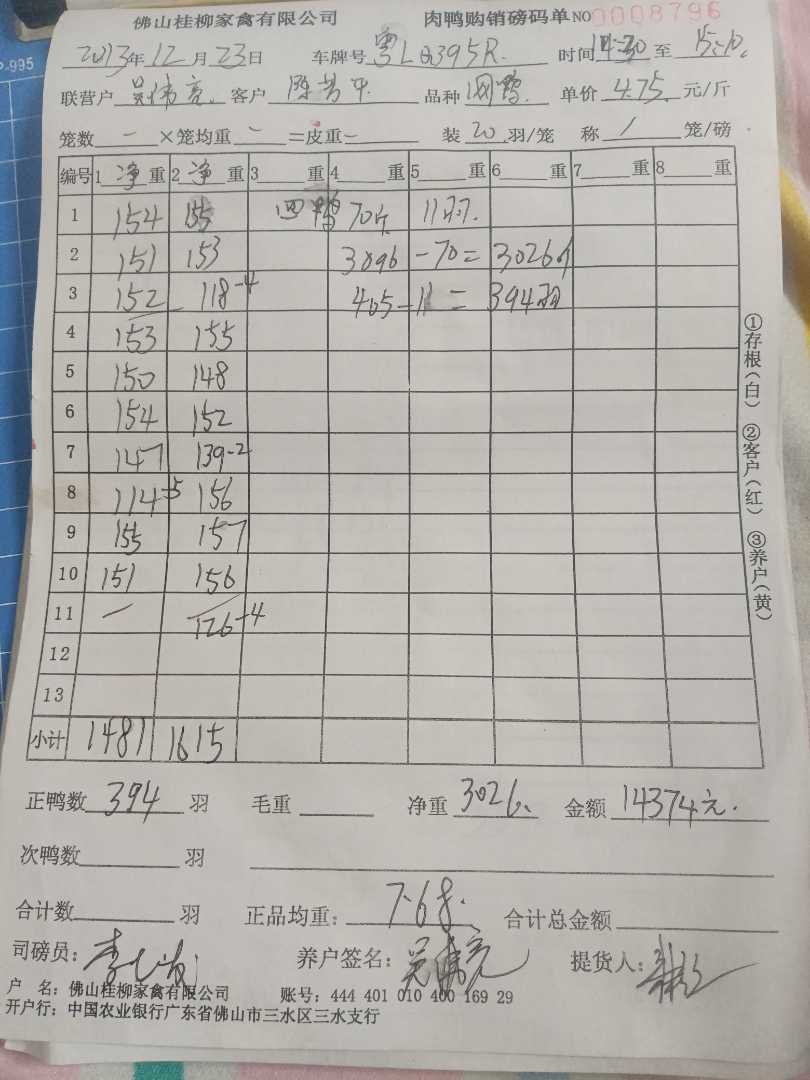 佛山桂柳家禽有限公司 肉鸭购销磅码单 NO 0008796
2013年 12 月 23 日 车牌号 粤LQ395R. 时间 14:30 至 15:10.
联营户 吴伟亮. 客户 陈芳平 品种 潤鸭 单价 4.75. 元/斤
笼数 一 ×笼均重 一 =皮重 一 装 20 羽/笼 称 1 笼/磅
编号 1 净 重 2 净 重 3 重 4 重 5 重 6 重 7 重 8 重
1 154 155 四鸭 70斤 11羽.
2 151 153 3096 -70= 3026斤
3 152 118-4 405-11 = 394羽
4 153 155
5 150 148
6 154 152
7 147 139-2
8 114-5 156
9 155 157
10 151 156
11 一 126-4
12
13
小计 1481 1615
①存根(白) ②客户(红) ③养户(黄)
正鸭数 394 羽 毛重 净重 3026. 金额 14374元.
次鸭数 羽
合计数 羽 正品均重: 7.68. 合计总金额
司磅员: 李 养户签名: 吴伟亮 提货人:
户 名: 佛山桂柳家禽有限公司 账号: 444 401 010 400 169 29
开户行: 中国农业银行广东省佛山市三水区三水支行